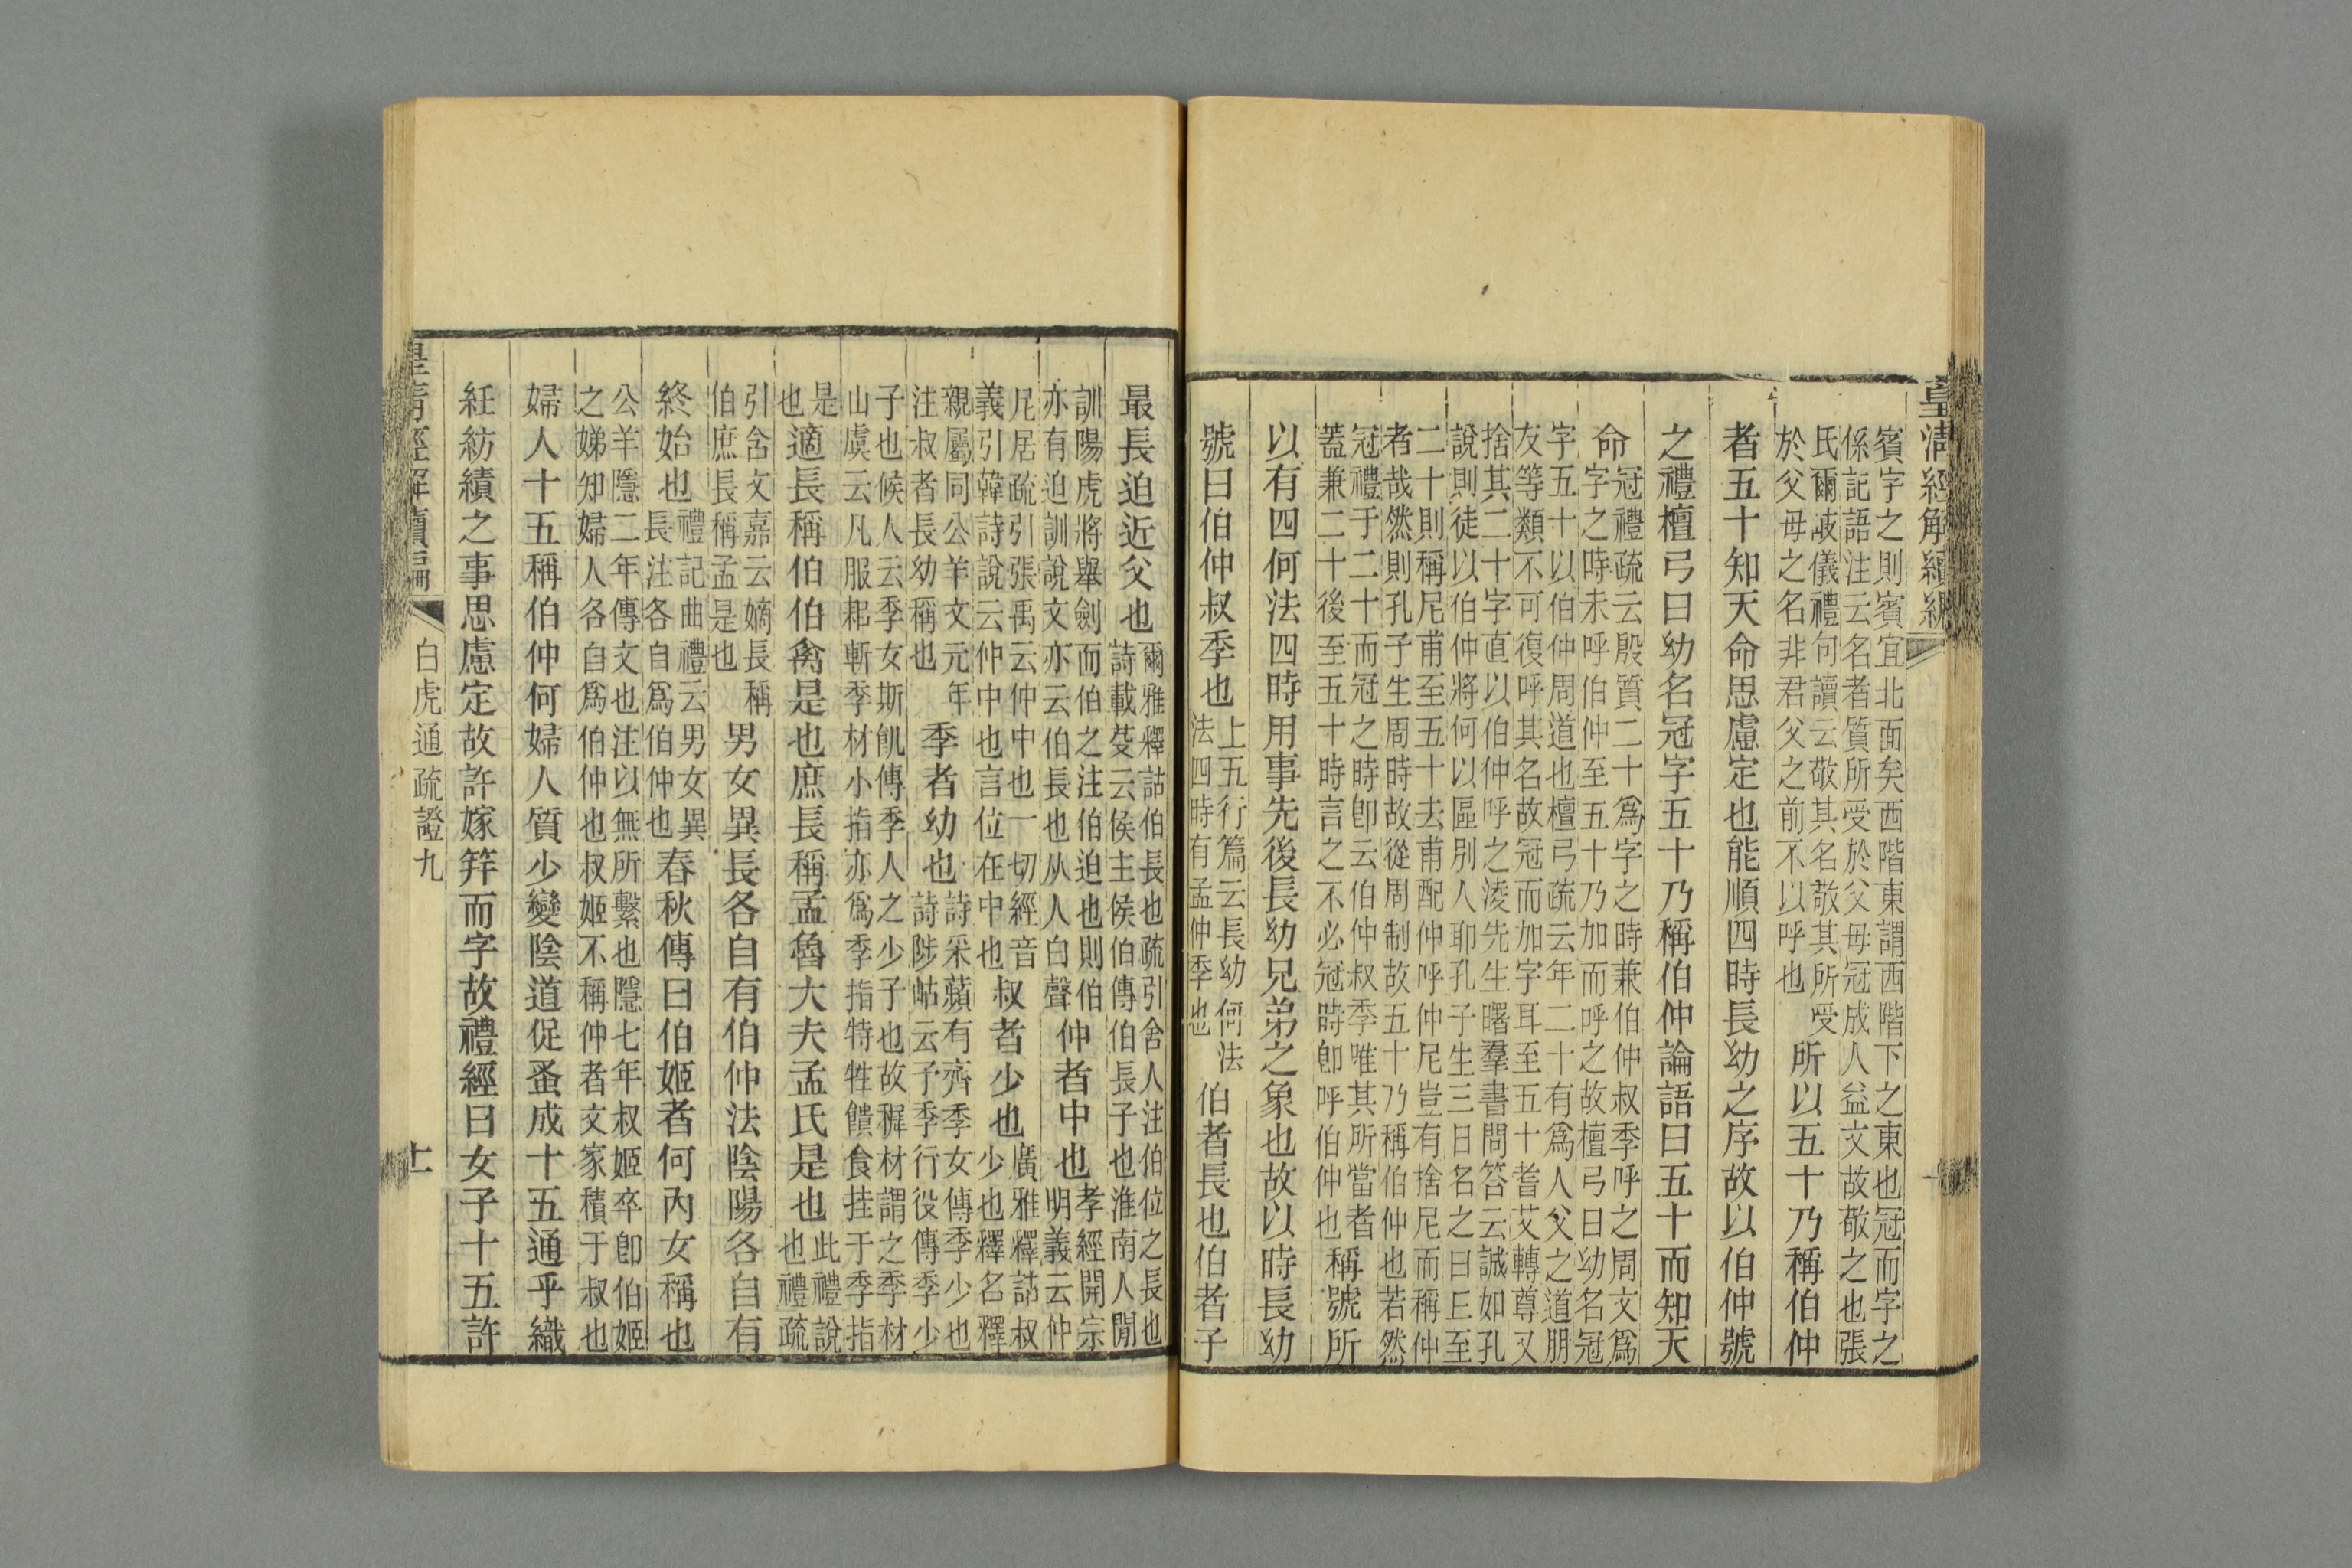 皇淸經解續編
賓字之則賓宜北面矣西階東謂西階下之東也冠而字之
係記語注云名者質所受於父母冠成人益文故敬之也張
氏爾岐儀禮句讀云敬其名敬其所受
於父母之名非君父之前不以呼也
所以五十乃稱伯仲
者五十知天命思慮定也能順四時長幼之序故以伯仲號
之禮檀弓曰幼名冠字五十乃稱伯仲論語曰五十而知天
命
冠禮疏云殷質二十爲字之時兼伯仲叔季呼之周文爲
字之時未呼伯仲至五十乃加而呼之故檀弓曰幼名冠
字五十以伯仲周道也檀弓疏云年二十有爲人父之道朋
友等類不可復呼其名故冠而加字耳至五十耆艾轉尊又
捨其二十字直以伯仲呼之淩先生曙羣書問答云誠如孔
說則徒以伯仲將何以區別人耶孔子生三日名之曰丘至
二十則稱尼甫至五十去甫配仲呼仲尼豈有捨尼而稱仲
者哉然則孔子生周時故從周制故五十乃稱伯仲也若然
冠禮于二十而冠之時卽云伯仲叔季唯其所當者
蓋兼二十後至五十時言之不必冠時卽呼伯仲也
稱號所
以有四何法四時用事先後長幼兄弟之象也故以時長幼
號曰伯仲叔季也
上五行篇云長幼何法
法四時有孟仲季也
伯者長也伯者子
最長迫近父也
爾雅釋詁伯長也疏引舍人注伯位之長也
詩載芟云侯主侯伯傳伯長子也淮南人閒
訓陽虎將舉劍而伯之注伯迫也則伯
亦有迫訓說文亦云伯長也从人白聲
仲者中也
孝經開宗
明義云仲
尼居疏引張禹云仲中也一切經音
義引韓詩說云仲中也言位在中也
叔者少也
廣雅釋詁叔
少也釋名釋
親屬同公羊文元年
注叔者長幼稱也
季者幼也
詩采蘋有齊季女傳季少也
詩陟岵云子季行役傳季少
子也候人云季女斯飢傳季人之少子也故穉材謂之季材
山虞云凡服耜斬季材小指亦爲季指特牲饋食挂于季指
是
也
適長稱伯伯禽是也庶長稱孟魯大夫孟氏是也
此禮說
也禮疏
引含文嘉云嫡長稱
伯庶長稱孟是也
男女異長各自有伯仲法陰陽各自有
終始也
禮記曲禮云男女異
長注各自爲伯仲也
春秋傳曰伯姬者何內女稱也
公羊隱二年傳文也注以無所繫也隱七年叔姬卒卽伯姬
之娣知婦人各自爲伯仲也叔姬不稱仲者文家積于叔也
婦人十五稱伯仲何婦人質少變陰道促蚤成十五通乎織
紝紡績之事思慮定故許嫁筓而字故禮經曰女子十五許
皇淸經解續編
白虎通疏證九
十一